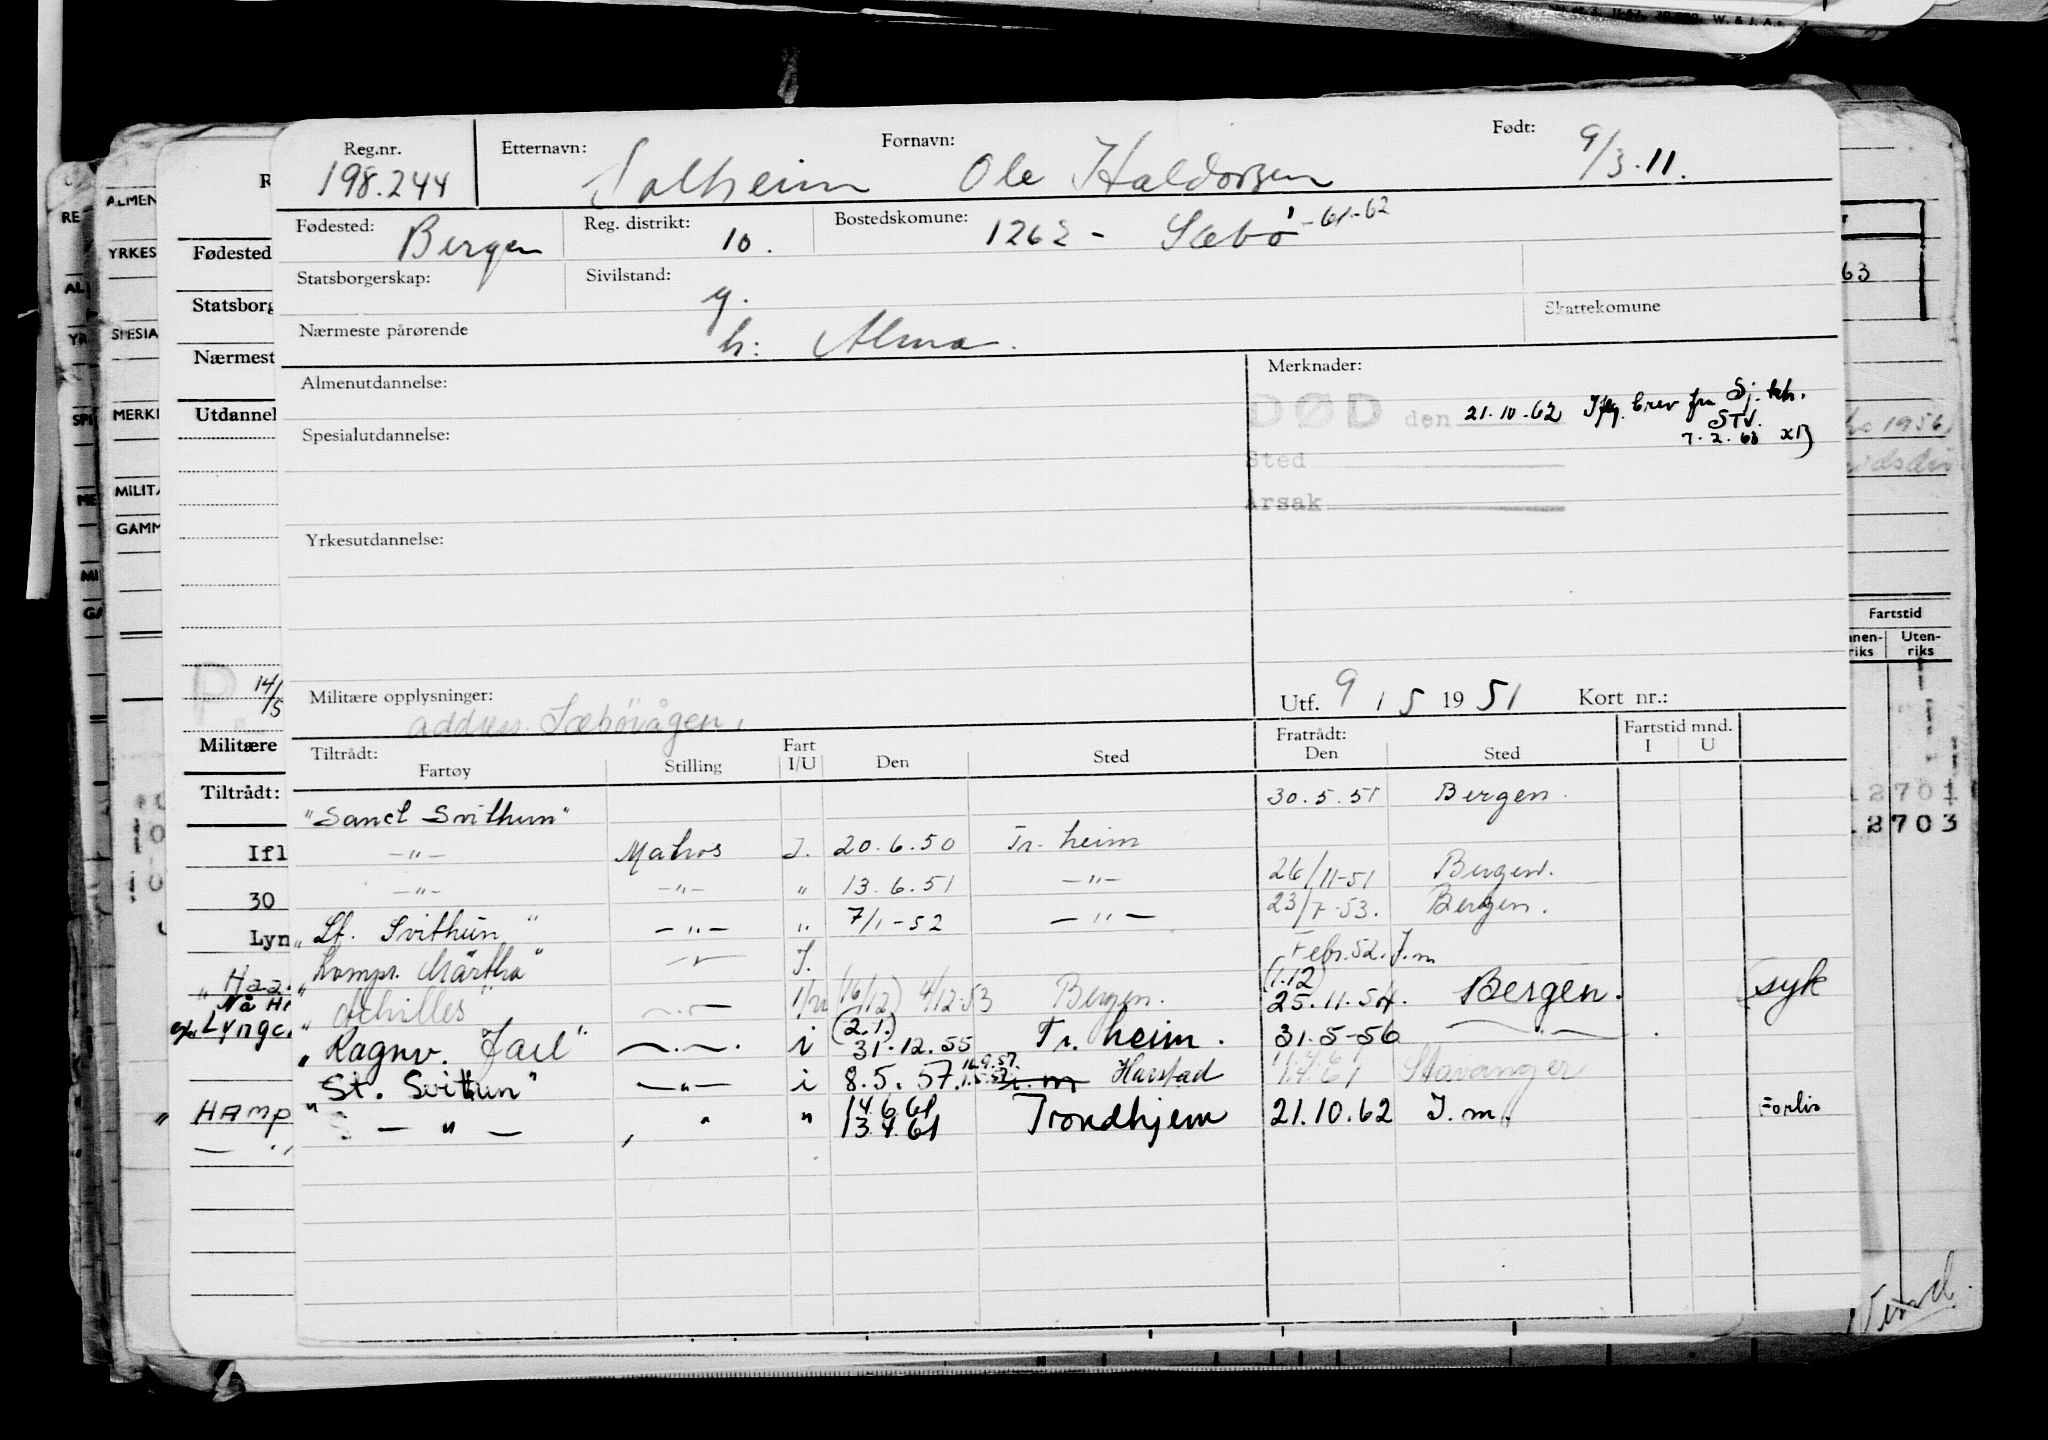 Reg.nr. Etternavn: Fornavn: Født:
198.244 Solheim Ole Haldorsen 9/3.11.
Fødested: Reg. distrikt: Bostedskomune:
Bergen 10. 1262 - Sæbø -61-62
Statsborgerskap: Sivilstand: Skattekomune
g.
Nærmeste pårørende h: Alma.
Almenutdannelse: Merknader:
DØD den 21.10.62 Iflg. brev fra Sj.
STV.
Spesialutdannelse: 7.2.63
Sted
Årsak
Yrkesutdannelse:
Militære opplysninger: Utf. 9 / 5 1951 Kort nr.:
address. Sæbøvågen.
Tiltrådt: Fratrådt: Fartstid mnd.
Fartøy Stilling Fart I/U Den Sted Den Sted I U
"Sanct Svithun" 30.5.51 Bergen.
-"- Matros I. 20.6.50 Tr. heim
-"- -"- " 13.6.51 -"- 26/11-51 Bergen.
"St. Svithun" -"- " 7/1-52 -"- 23/7-53. Bergen.
"Kompr. Märtha" I. Febr. 52. I.m
"Achilles" (16/12) 4/12-53 Bergen. (1.12) 25.11.54. Bergen. syk
"Ragnv. Jarl" i (2.1.) 31.12.55 Tr. heim. 31.5-56
"St. Svithun" -"- i 8.5.57. 16.9.57. Harstad 1.4.61 Stavanger
- " - " " 14.6.61 13.4.61 Trondhjem 21.10.62 I.m. Forlis
ALMEN
YRKES
SPESIA
MERK
MILIT
GAMM
Fødested
Statsborg
Nærmest
Utdannel
Militære
Tiltrådt:
Ifl
30
Lyn
Nå
HAMP
63
1956
Fartstid
Uten-
riks
12701
12703